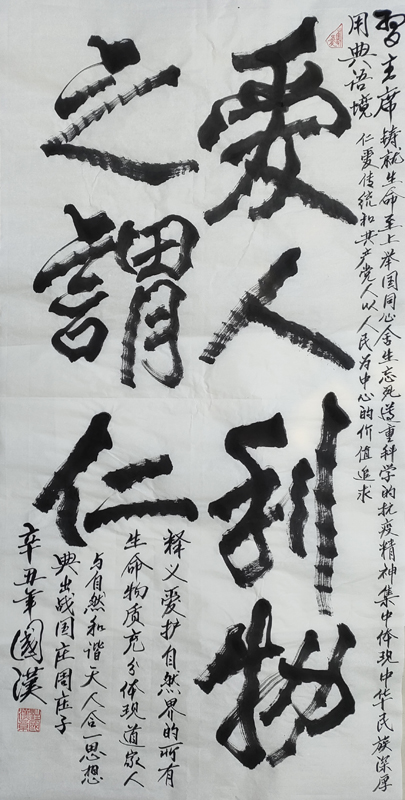 习主席铸就生命至上举国同心舍生忘死尊重科学的抗疫精神集中体现中华民族深厚
用典语境
仁爱传统和共产党人以人民为中心的价值追求
爱人利物
之謂仁
释义爱护自然界的所有
生命物质充分体现道家人
与自然和谐天人合一思想
典出战国庄周庄子
辛丑年國漢